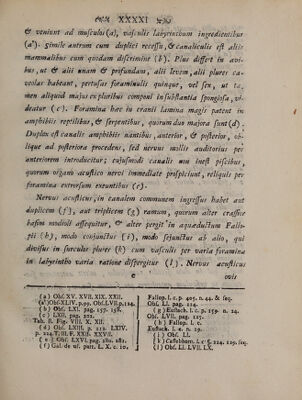 XXXXI
& veniunt ad musculos (a), vasculis labyrinthum ingredientibus
(a*). Simile antrum cum duplici recessu, & canaliculis est aliis
mammalibus cum quodam discrimine (b). Plus differt in avi-
bus, ut & alii unam & profundam, alii levem, alii plures ca-
veolas habeant, pertusas foraminulis quinque, vel sex, ut ta-
men aliquid majus ex pluribus componi in substantia spongiosa vi-
deatur (c). Foramina hæc in cranii lamina magis patent in
amphibiis reptilibus, & serpentibus, quorum duo majora sunt (d).
Duplex est canalis amphibiis nantibus, anterior, & posterior, ob-
lique ad posteriora procedens, sed nervus mollis auditorius per
anteriorem introducitur; cujusmodi canalis uni inest piscibus,
quorum organo acustico nervi immediate prospiciunt, reliquis per
foramina extrorsum exeuntibus (e).
Nervus acusticus, in canalem communem ingressus habet aut
duplicem (f), aut triplicem (g) ramum, quorum alter crassus
basim modioli assequitur, & alter pergit in aquæductum Fallo-
pii (h), modo conjunctus (i), modo sejunctus ab alio, qui
divisus in surculos plures (k) cum vasculis per varia foramina
in labyrintho varia ratione dispergitur (l). Nervus acusticus
e
ovis
(a) Obs. XV. XVII. XIX. XXII.
(a*) Obs. XLIV. p. 99. Obs. LV. p. 124.
(b) Obs. LXI. pag. 157. 158.
(c) LXII. pag. 202.
Tab. II. Fig. VIII. X. XII.
(d) Obs. LXIII. p. 212. LXIV.
p. 224. T. III. F. XXII. XXVII.
(e) Obs. LXVI. pag. 280. 281.
(f) Gal. de us. part. L. X. c. 10.
Fallop. l. c. p. 405. n. 44. & seq.
Obs. LI. pag. 114.
(g) Eustach. l. c. p. 159. n. 24.
Obs. LVII. pag. 127.
(h) Fallop. l. c.
Eustach. l. c. n. 29.
(i) Obs. LI.
(k) Cassebohm. l. c. §. 224. 225. seq.
(l) Obs. LI. LVII. LX.